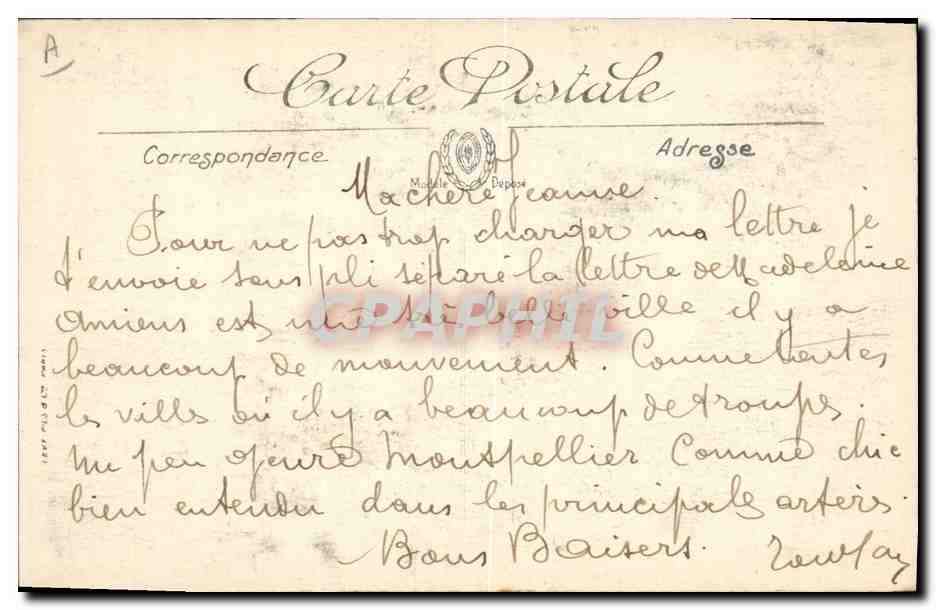 A
Carte Postale
Correspondance
Adresse
Modèle Déposé
Ma chere Jeanne.
Pour ne pas trop charger ma lettre je
t'envoie sous pli séparé la lettre de Madeleine
Amiens est une très belle ville il y a
beaucoup de mouvement. Comme toutes
les villes où il y a beaucoup de troupes.
un peu genre Montpellier Comme chic
bien entendu dans les principales artères.
Bons Baisers.
CPAPHIL